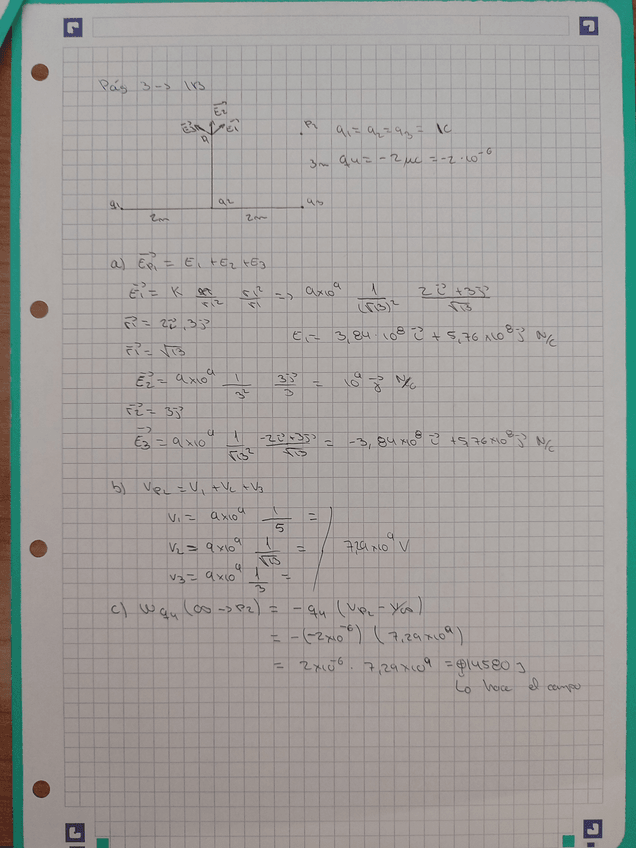 Pág 3 → 1B3
E⃗2
E⃗3 E⃗1
A
P2
3m
q1 q2 q3
2m 2m
q1 = q2 = q3 = 1C
q4 = -2 μC = -2·10⁻⁶
a) E⃗p1 = E1 + E2 + E3
E⃗1 = K q1/r1² r⃗1/r1 => 9x10⁹ 1/(√13)² 2i⃗+3j⃗/√13
r⃗1 = 2i⃗, 3j⃗
E1 = 3,84·10⁸ i⃗ + 5,76x10⁸ j⃗ N/C
r⃗1 = √13
E⃗2 = 9x10⁹ 1/3² 3j⃗/3 = 10⁹ j⃗ N/C
r⃗2 = 3j⃗
E⃗3 = 9x10⁹ 1/√13² -2i⃗+3j⃗/√13 = -3,84x10⁸ i⃗ + 5,76x10⁸ j⃗ N/C
b) Vp2 = V1 + V2 + V3
V1 = 9x10⁹ 1/5 =
V2 = 9x10⁹ 1/√13 = 7,29x10⁹ V
V3 = 9x10⁹ 1/3 =
c) Wq4 (∞→P2) = -q4 (Vp2 - V∞)
= -(-2x10⁻⁶) (7,29x10⁹)
= 2x10⁻⁶ · 7,29x10⁹ = 14580 J
Lo hace el campo